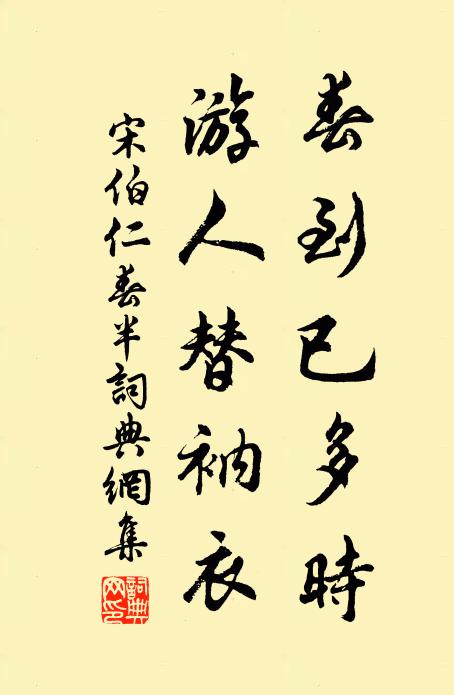 春到已多時
游人替衲衣
宋伯仁春半詞典網集
詞典網印